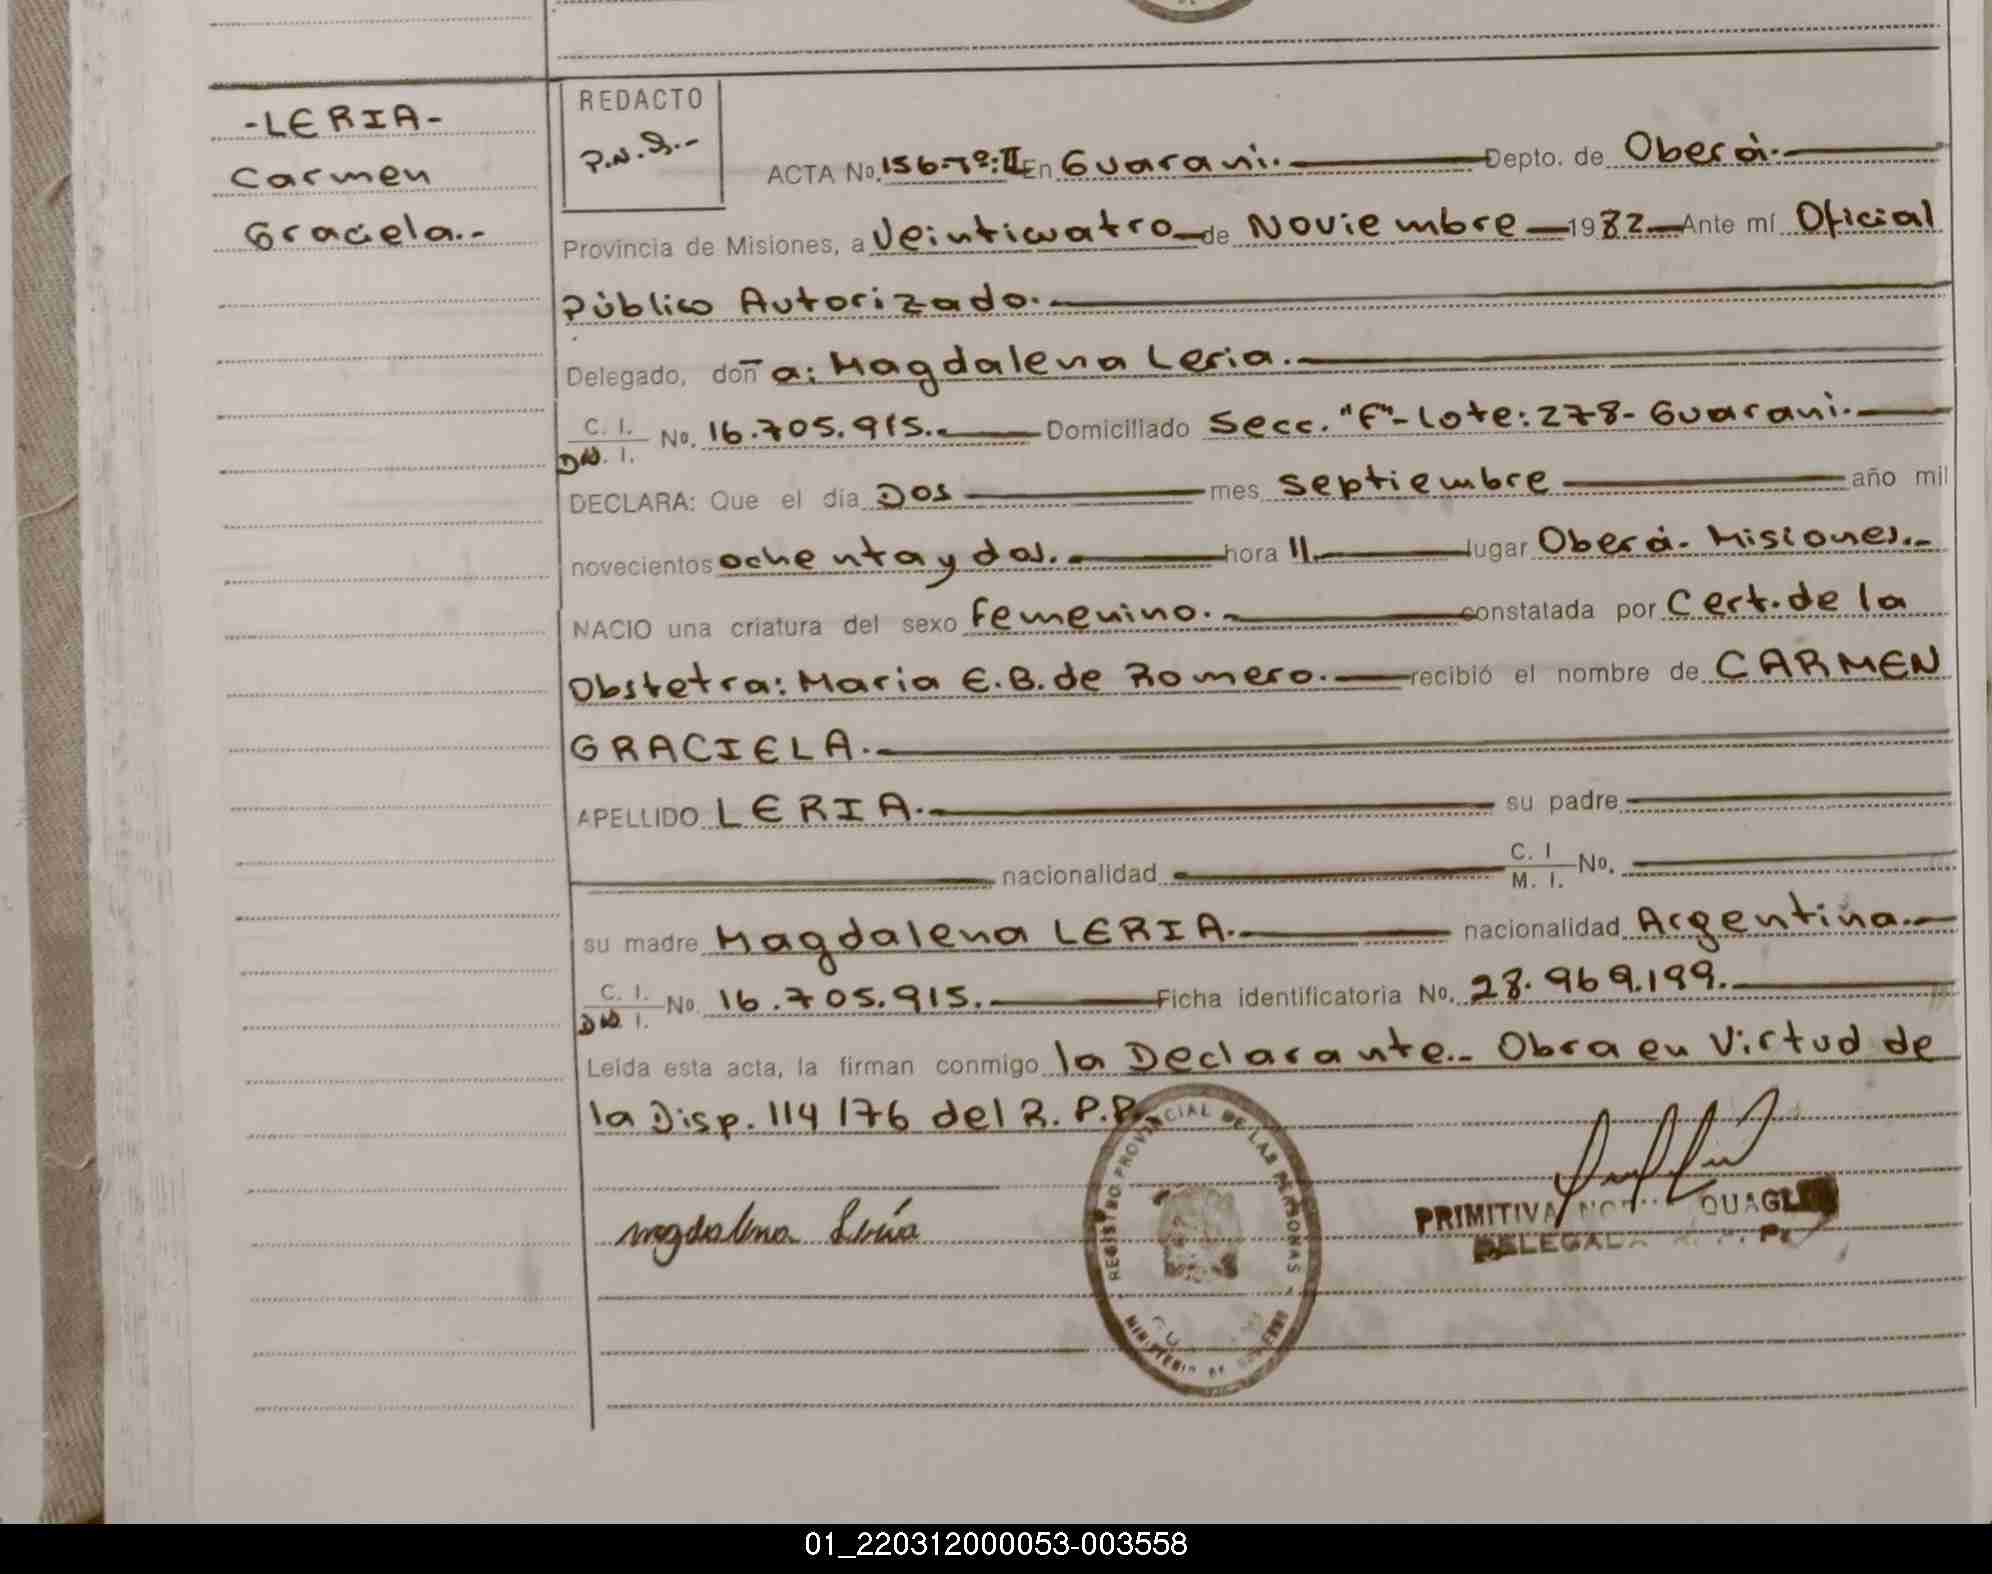 -LERIA-
Carmen
Graciela.-
REDACTO
P.N.Q.-
ACTA No. 156-Tº:II En Guaraní. Depto. de Oberá.
Provincia de Misiones, a Veinticuatro de Noviembre 1982 Ante mí Oficial
Público Autorizado.
Delegado, doña: Magdalena Leria.
C. I.
DN. I. No. 16.705.915. Domiciliado Secc. "F"-Lote: 278- Guaraní.
DECLARA: Que el día Dos mes septiembre año mil
novecientos ochenta y dos. hora 11. lugar Oberá. Misiones.-
NACIO una criatura del sexo femenino. constatada por Cert. de la
Obstetra: Maria E.B. de Romero. recibió el nombre de CARMEN
GRACIELA.
APELLIDO LERIA. su padre
nacionalidad C. I
M. I. No.
su madre Magdalena LERIA. nacionalidad Argentina.-
C. I.
DN. I. No. 16.705.915. Ficha identificatoria No. 28.969.199.
Leída esta acta, la firman conmigo la Declarante.- Obra en Virtud de
la Disp. 114/76 del R.P.P.
REGISTRO PROVINCIAL DE LAS PERSONAS
MINISTERIO DE GOBIERNO
Magdalena Leria
PRIMITIVA QUAGLIA
DELEGADA
01_220312000053-003558